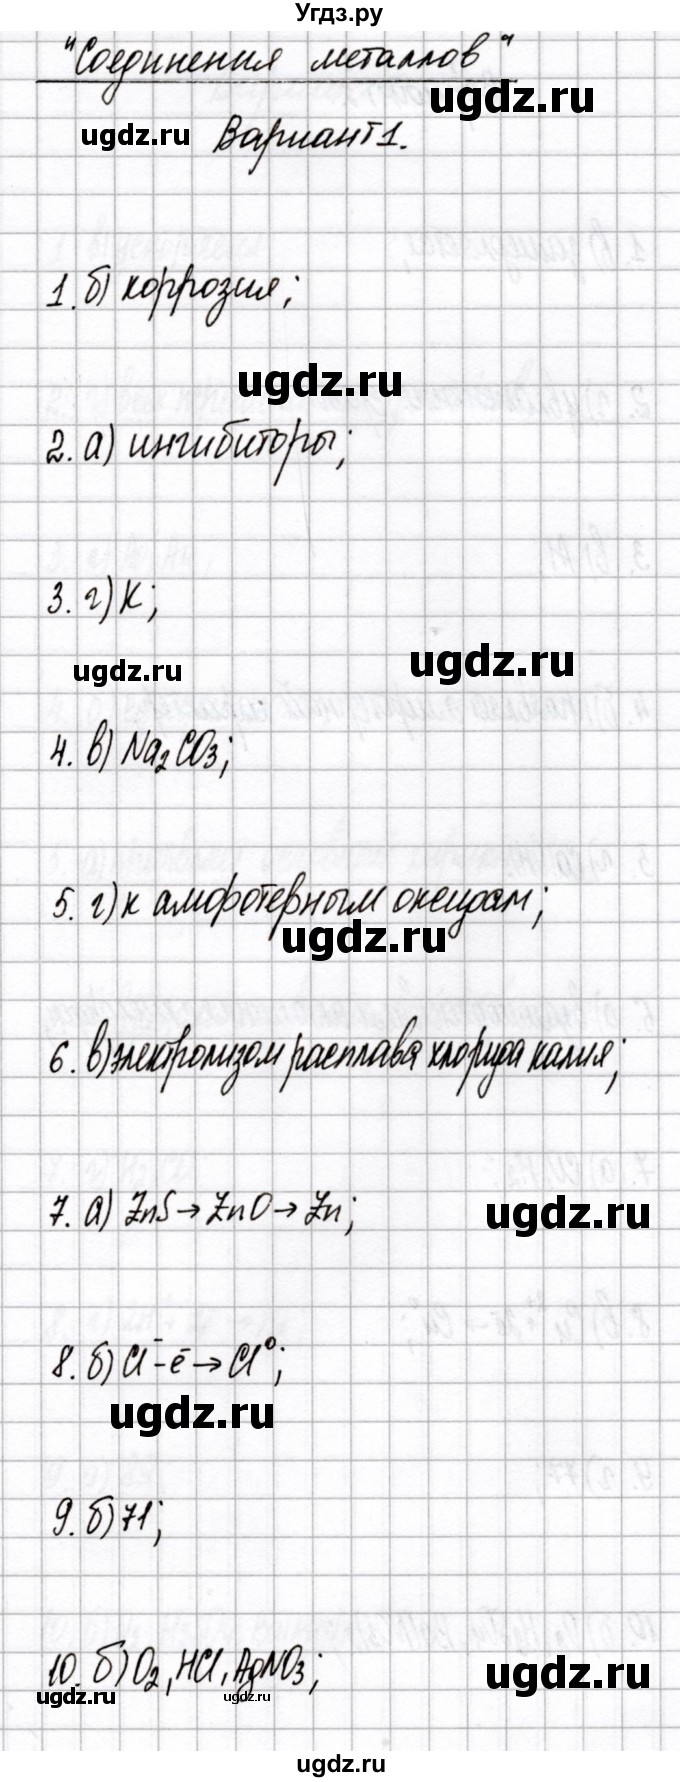 Угдз.ру
"Соединения металлов"
ugdz.ru
ugdz.ru
Вариант 1.
1. б) коррозия;
ugdz.ru
2. а) ингибиторы;
3. г) K;
ugdz.ru
ugdz.ru
4. в) Na₂CO₃;
5. г) к амфотерным оксидам;
ugdz.ru
6. в) электролизом расплава хлорида калия;
7. а) ZnS → ZnO → Zn;
ugdz.ru
8. б) Cl⁻ - e⁻ → Cl⁰;
ugdz.ru
9. б) 71;
10. б) O₂, HCl, AgNO₃;
ugdz.ru
ugdz.ru
ugdz.ru
ugdz.ru